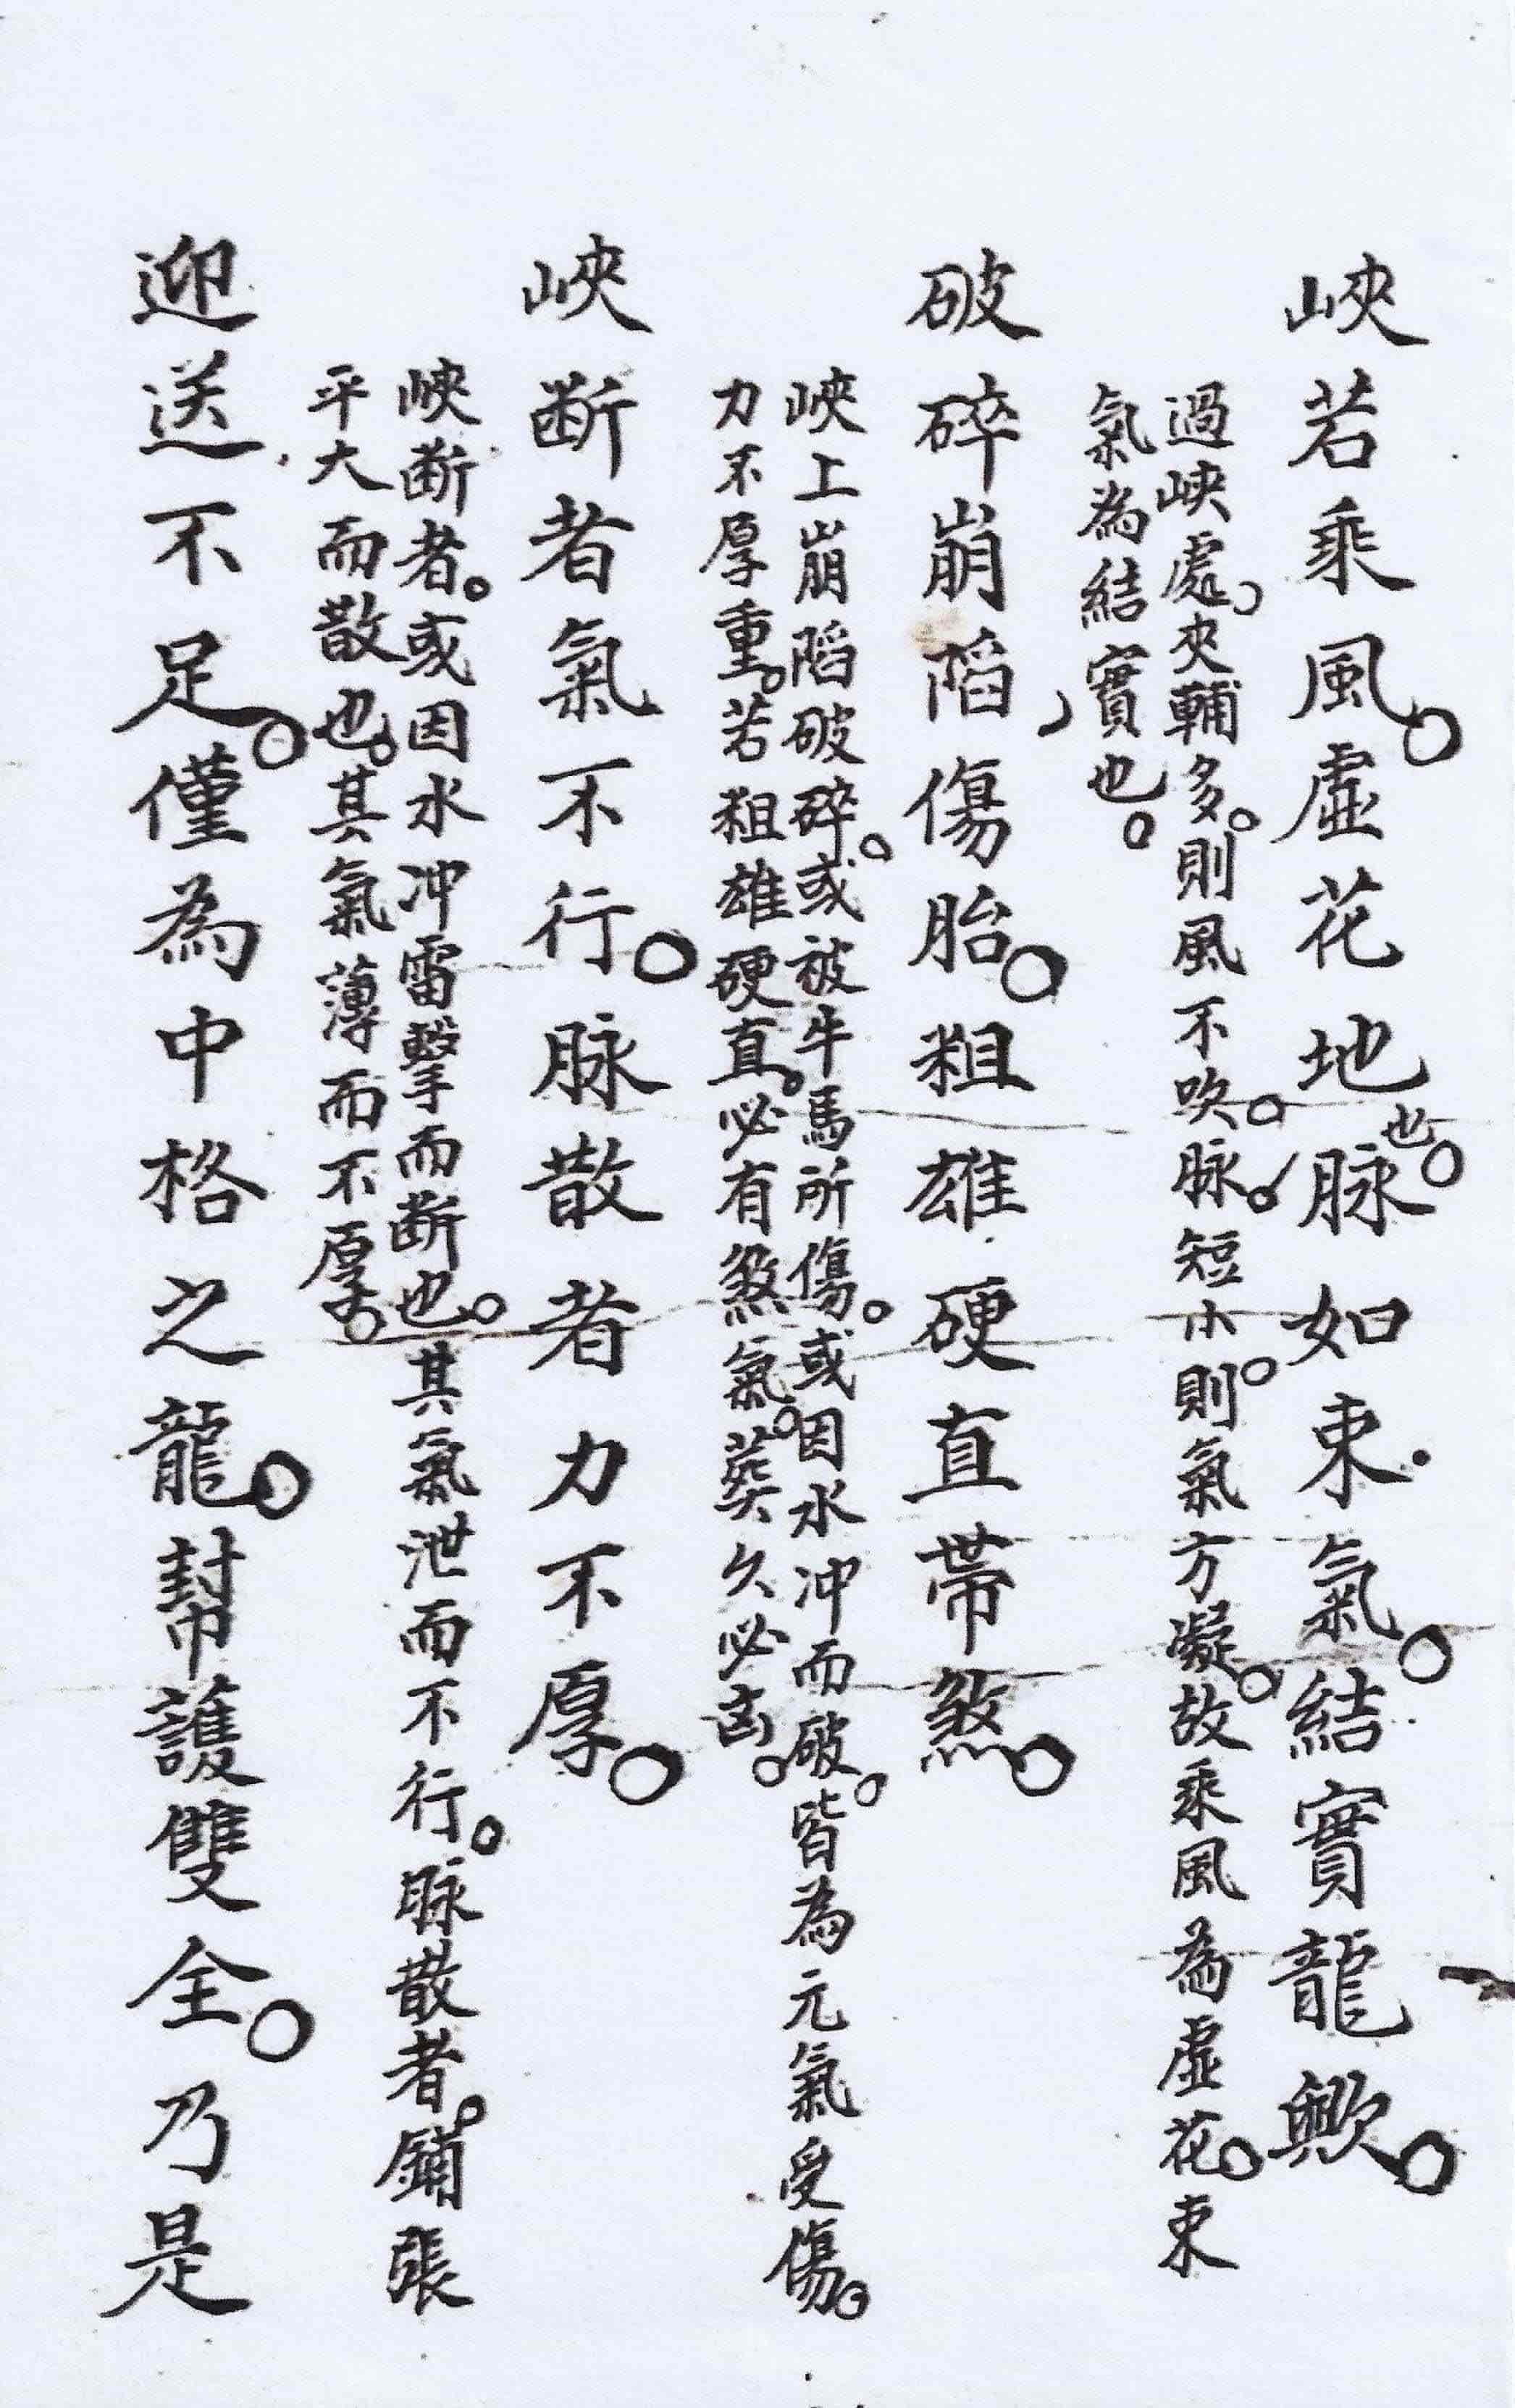 峽若乘風。虛花地也。脉如束氣。結實龍歟。
過峽處。夾輔多。則風不吹。脉。短小則。氣方凝。故乘風為虛花。束
氣為結實也。
破碎崩陷傷胎。粗雄硬直帶煞。
峽上崩陷破碎。或被牛馬所傷。或因水冲而破。皆為元氣受傷。
力不厚重。若粗雄硬直。必有煞氣。葬久必凶。
峽断者氣不行。脉散者力不厚。
峽断者。或因水冲雷擊而断也。其氣泄而不行。脉散者。鋪張
平大而散也。其氣薄而不厚。
迎送不足。僅為中格之龍。幇護雙全。乃是